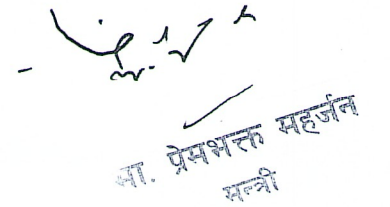 मा. प्रेमभक्त महर्जन
मन्त्री